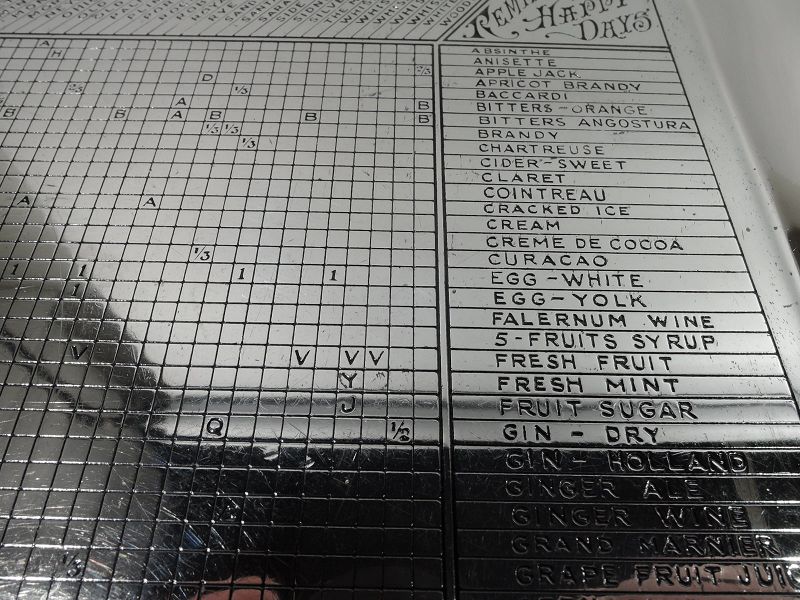 HAPPY
DAYS
ABSINTHE
ANISETTE
APPLE JACK
APRICOT BRANDY
BACCARDI
BITTERS-ORANGE
BITTERS ANGOSTURA
BRANDY
CHARTREUSE
CIDER-SWEET
CLARET
COINTREAU
CRACKED ICE
CREAM
CREME DE COCOA
CURACAO
EGG-WHITE
EGG-YOLK
FALERNUM WINE
5-FRUITS SYRUP
FRESH FRUIT
FRESH MINT
FRUIT SUGAR
GIN - DRY
GIN - HOLLAND
GINGER ALE
GINGER WINE
GRAND MARNIER
GRAPE FRUIT JUIC
A
H
2/3
D
2/3
1/3
A
B
B
B
A
B
B
B
1/3 1/3
1/3
A
A
1/3
1
1
1
1
1
V
V
V
V
Y
J
Q
1/2
1/3